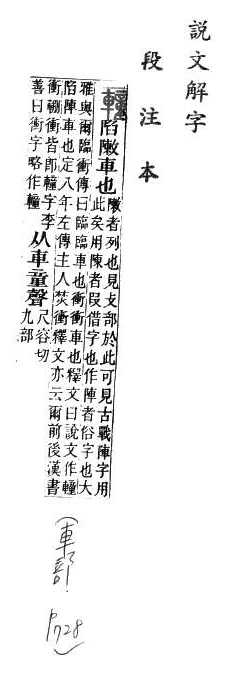 説文解字
段注本
䡴 陷敶車也
敶者列也見攴部於此可見古戰陣字用
此矣用陳者叚借字也作陣者俗字也大
雅與爾臨衝傳曰臨臨車也衝衝車也釋文曰說文作䡴
陷陣車也定八年左傳主人焚衝釋文亦云爾前後漢書
衝輣衝皆卽䡴字李
善曰衝字略作䡴
从車童聲
尺容切
九部
(車部 P728)